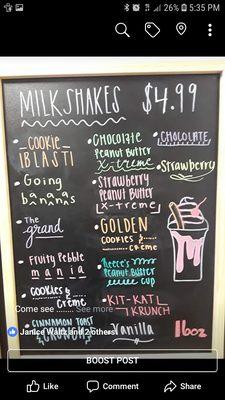 26% 5:35 PM
MILKSHAKES $4.99
COOKIE
BLAST!
Going
bananas
The
grand
Fruity Pebble
mania
cookies &
Crème
CINNAMON TOAST
CRUNCH
CHOCOLATE
Peanut Butter
X-treme
Strawberry
Peanut Butter
X-treme
GOLDEN
COOKIES &
crème
Reece's
Peanut Butter
CUP
KIT-KAT
KRUNCH
Vanilla
CHOCOLATE
Strawberry
16oz
Dome see ....... See more
Janice Waltz and 2 others
BOOST POST
Like
Comment
Share